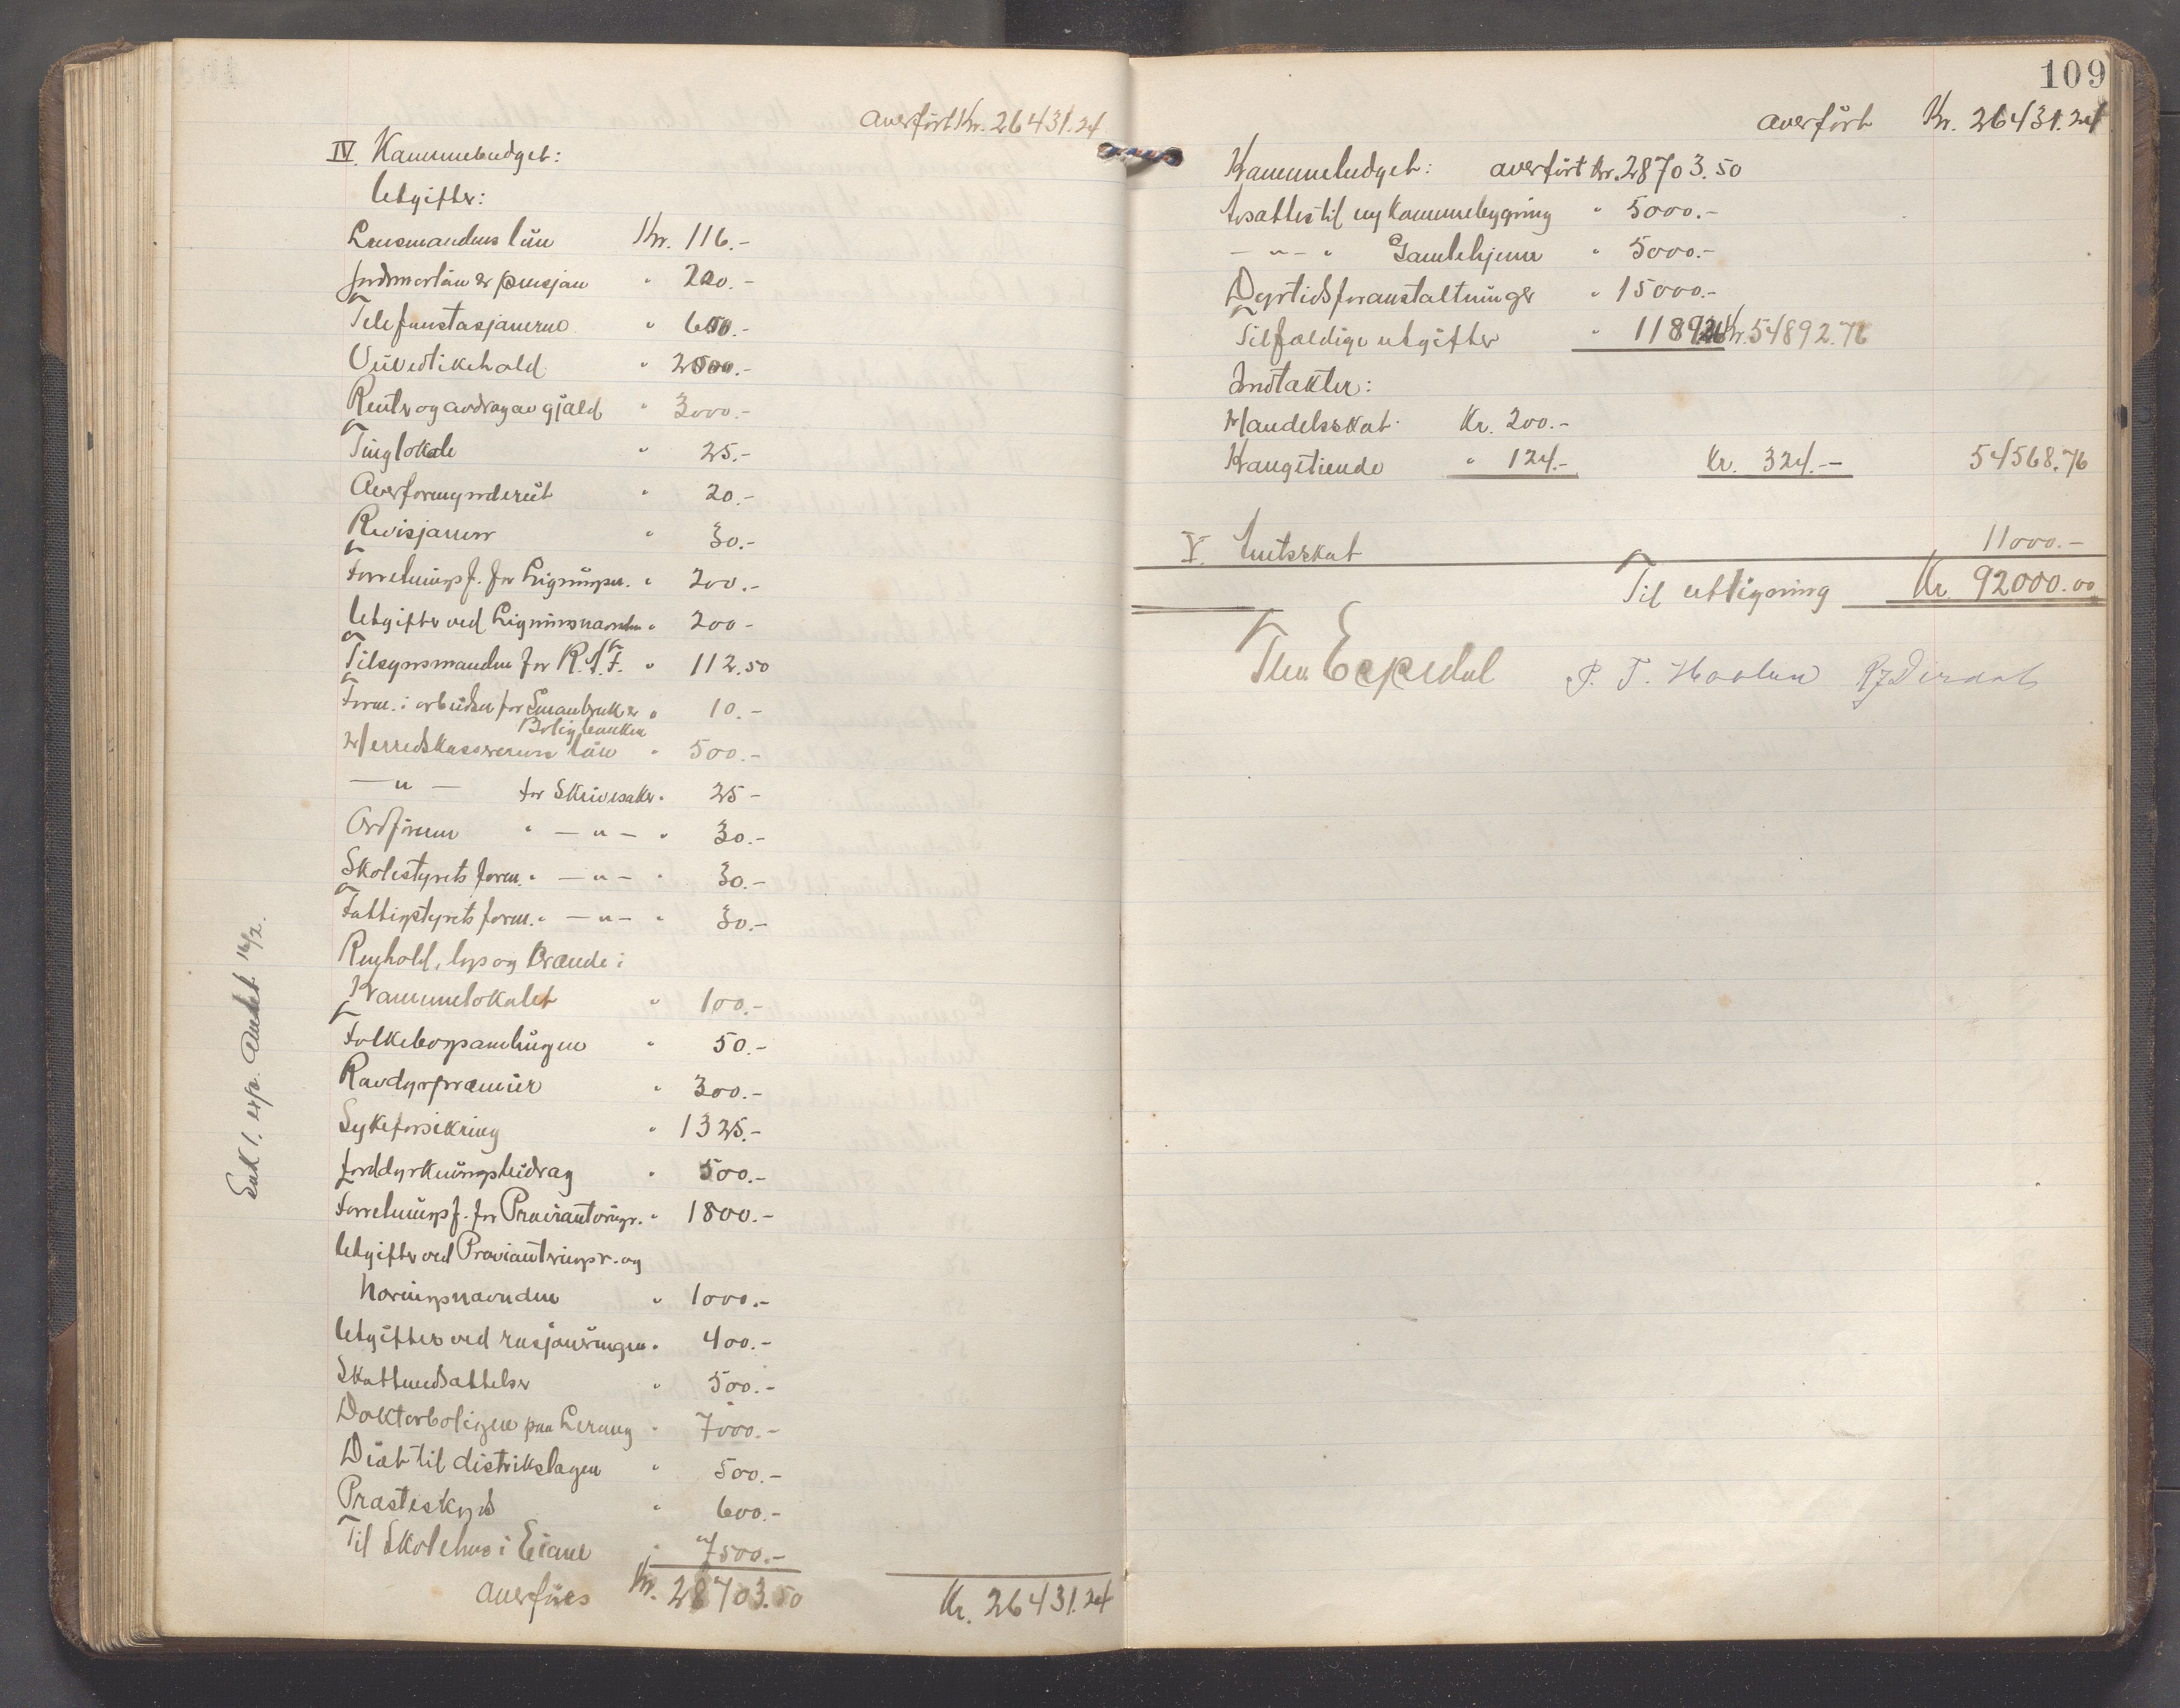 Averfört Kr. 26431.24
IV. Kommunebudget:
Utgifter:
Lensmandens lön Kr. 116.-
Jordmorlön & pensjon " 200.-
Telefonstasjonerne " 650.-
Veivedlikehold " 2500.-
Renter og avdrag av gjæld " 3000.-
Tinglokale " 25.-
Overformynderiet " 20.-
Revisjonen " 30.-
Forretningsf. for Ligningsn. " 200.-
Utgifter ved Ligningsnævnden " 200-
Tilsynsmanden for R.T.F. " 112.50
Form. i arbeidsn for Smaabruk &
Boligbanken " 10.-
Herredskassererens lön " 500.-
— " — for Skrivesaker " 25-
Ordföreren " — " — " 30.-
Skolestyrets form. " — " — " 30.-
Fattigstyrets form. " — " — " 30.-
Renhold, lys og brænde i
Kommunelokalet " 100.-
Folkebogsamlingen " 50.-
Rovdyrpræmier " 300.-
Sykeforsikring " 1325.-
Jorddyrkningsbidrag " 500.-
Forretningsf. for Provianteringsr. " 1800.-
Utgifter ved Provianteringsr. og
Kornnævnden " 1000.-
Utgifter ved rasjoneringen " 400.-
Skattnedsættelser " 500.-
Doktorboligen paa Lerang " 7000.-
Diæt til distrikslægen " 500.-
Presteskyds " 600.-
Til Skolehus i Eiane " 7500.-
Averföres Kr. 28703.50 Kr. 26431.24
Utk. 1. exp. Amtet 14/2.
109
Averfört Kr. 26431.24
Kommunebudget: averfört Kr. 28703.50
Avsættes til ny Kommunebygning " 5000.-
— " — " Gamlehjem " 5000.-
Dyrtidsforanstaltninger " 15000.-
Tilfældige utgifter " 1189.26 Kr. 54892.76
Indtækter:
Handelsskat Kr. 200.-
Kongetiende " 124.- Kr. 324.- 54568.76
V. Amtsskat 11000.-
Til utligning Kr. 92000.00
Thv. Espedal P. T. Haalan R J Dirdal